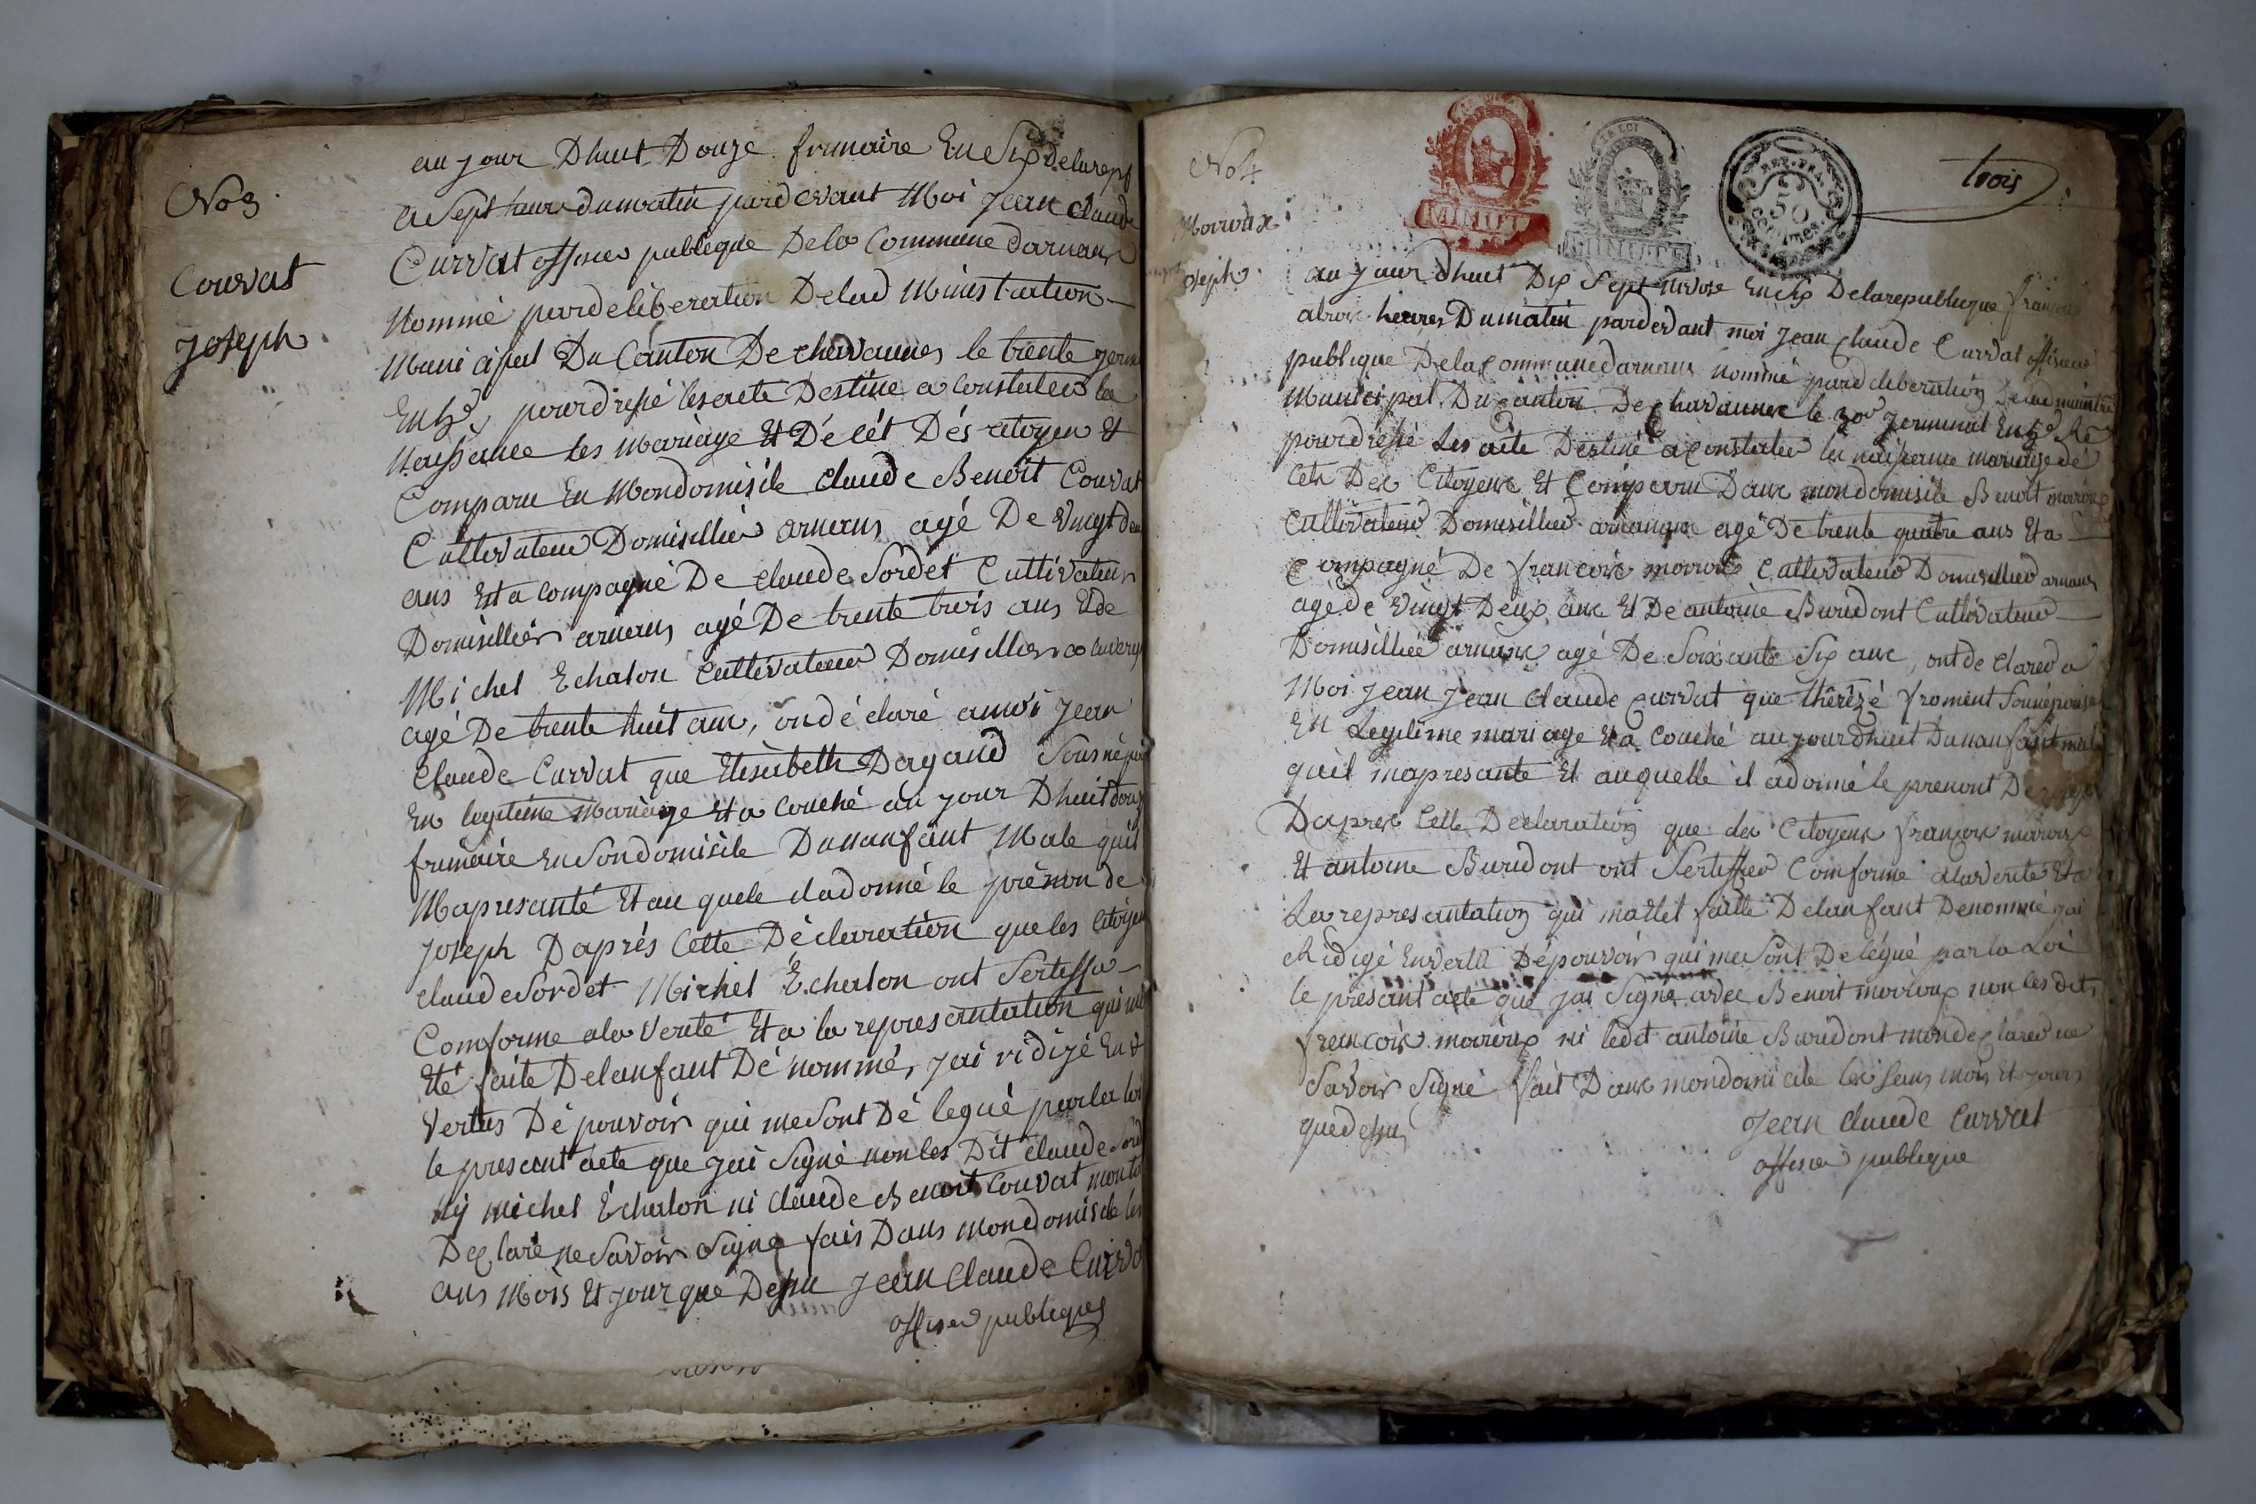 No 3
Courvat
Joseph
au jour Dhuit Douze frimaire En Six Delarep
a Sept heure dumatin pardevant Moi Jean Claude
Curvat officier publique Dela Commune darnans
Nommé pardeliberation Delad Ministration
Municipal Du Canton De chavannes le trente germ
pourdressé lesacte Destine a constateur la
Naissance les Mariage Et Décét Dés citoyen Et
Comparu En Mondomisile Claude Benoit Couvat
Cultivateur Domisillier arnans agé De Vingt deu
ans Et a compagné De Claude Sordet Cultivateur
Domisillier arnans agé De trente trois ans Et de
Michel Echalon Cultivateur Domisillier
agé De trente huit ans, on dé claré a moi Jean
Claude Curvat que Elisabeth Dagand
En legitime Mariage Et a couché au jour Dhuit douz
frimaire En Sondomisile Dunanfant Male quil
Mapresanté Et au quele iladonné le prénon de
Joseph Daprés Cette Déclaration que les Citoyen
Claude Sordet Michel Echalon ont Sertiffie
Comforme ala Verité Et a la representation qui ma
Eté faite Delanfant Dé nommé, Jai ridizé En
Vertus Dé pouvoir qui me Sont Dé legué par la loi
le present acte que Jai Signé non les Dit Claude Sord
ny Michel Echalon ni Claude Benoit Couvat
Declaré ne Savoir Signé fais Dans Mondomisile les
ans Mois Et Jour que Dessu Jean Claude Curva
officier publique
No 4
Morroux
Joseph
MINUTE
LA LOI
MINUTE
REP. FRA.
50
CENTIMES
trois
au Jour dhuit Dix Sept nivose En Six Delarepublique français
heures Dumatin pardevant moi Jean Claude Curvat officier
publique Dela Commune darnans nommé pardeliberation
Municipal Du Canton De Chavannes le 30 Germinal
pourdressé Les acte Destiné a Constater les naissance mariage dé
Cés Des Citoyens Et Comparu Dans mondomisile Benoit moroux
Cultivateur Domisillier arnans agé De trente quatre ans Et a
Compagné De françois moroux Cultivateur Domisillier arnans
agé de Vingt Deux ans Et De antoine Buridont Cultivateur
Domisillié arnans agé De Soixante Six ans, ont de claré a
Moi Jean Jean Claude Curvat que thérèze froment
En Legitime mariage Et a Couché aujourdhuit Dunanfant mal
quil mapresante Et auquelle il adonné le prenont De
Dapres Cette Declaration que des Citoyens françois moroux
Et antoine Buridont ont Sertiffier Comforme alaverité Et a
La representation qui matlet faitte Delanfant Denommé jai
Ridigé Envertu Dépouvoir qui me Sont Delégué par la Loi
le présant acte que jai Signé avec Benoit moroux non les dit
françois moroux ni ledit antoine Buridont mondeclared ne
Savoir Signé fait Dans mondomicile les Sans mois Et jours
quedessus
Jean Claude Curvat
officier publique